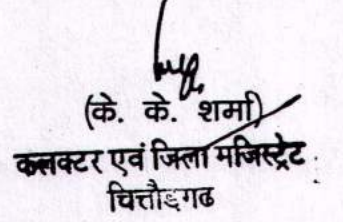 (के. के. शर्मा)
कलक्टर एवं जिला मजिस्ट्रेट
चित्तौड़गढ